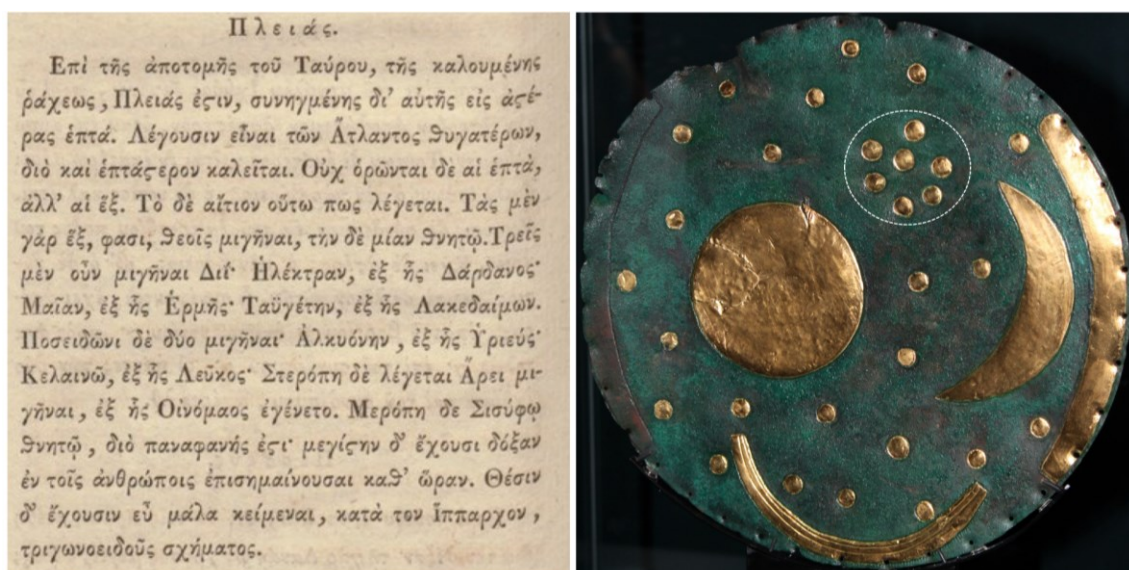 Πλειάς.
Επὶ τῆς ἀποτομῆς τοῦ Ταύρου, τῆς καλουμένης
ῥάχεως, Πλειάς ἐϛιν, συνηγμένης δι' αὐτῆς εἰς ἀϛέ-
ρας ἑπτά. Λέγουσιν εἶναι τῶν Ἄτλαντος ϑυγατέρων,
διὸ καὶ ἑπτάϛερον καλεῖται. Οὐχ ὁρῶνται δὲ αἱ ἑπτὰ,
ἀλλ' αἱ ἕξ. Τὸ δὲ αἴτιον οὕτω πως λέγεται. Τὰς μὲν
γὰρ ἕξ, φασι, ϑεοῖς μιγῆναι, τὴν δὲ μίαν ϑνητῷ. Τρεῖς
μὲν οὖν μιγῆναι Διΐ· Ἠλέκτραν, ἐξ ἧς Δάρδανος·
Μαῖαν, ἐξ ἧς Ἑρμῆς· Ταϋγέτην, ἐξ ἧς Λακεδαίμων.
Ποσειδῶνι δὲ δύο μιγῆναι· Ἀλκυόνην, ἐξ ἧς Ὑριεύς·
Κελαινὼ, ἐξ ἧς Λεῦκος· Στερόπη δὲ λέγεται Ἄρει μι-
γῆναι, ἐξ ἧς Οἰνόμαος ἐγένετο. Μερόπη δε Σισύφῳ
ϑνητῷ, διὸ παναφανής ἐϛι· μεγίϛην δ' ἔχουσι δόξαν
ἐν τοῖς ἀνθρώποις ἐπισημαίνουσαι καϑ' ὥραν. Θέσιν
δ' ἔχουσιν εὖ μάλα κείμεναι, κατὰ τον Ἵππαρχον,
τριγωνοειδοῦς σχήματος.